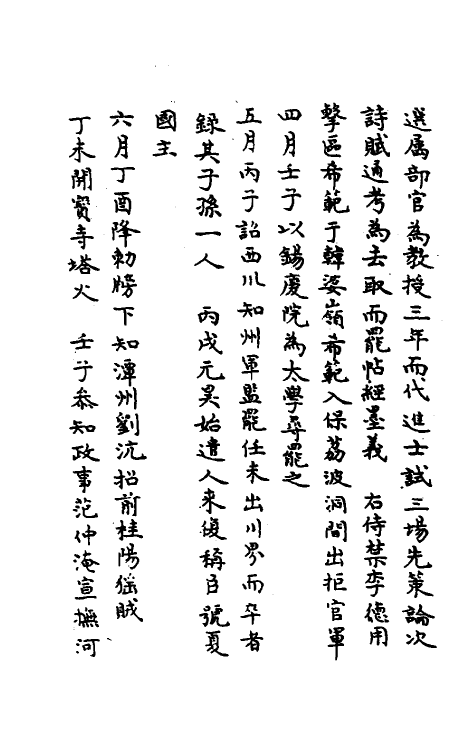 選属部官為教授三年而代進士試三場先策論次
詩賦通考為去取而罷帖經墨義　右侍禁李德用
擊區希範于韓婆嶺希範入保荔波洞間出拒官軍
四月壬子以錫慶院為太學尋罷之
五月丙子詔西川知州軍監罷任未出川界而卒者
錄其子孫一人　丙戌元昊始遣人來復稱臣號夏
國主
六月丁酉降勅牓下知潭州劉沆招前桂陽猺賊
丁未開寳寺塔火　壬子叅知政事范仲淹宣撫河